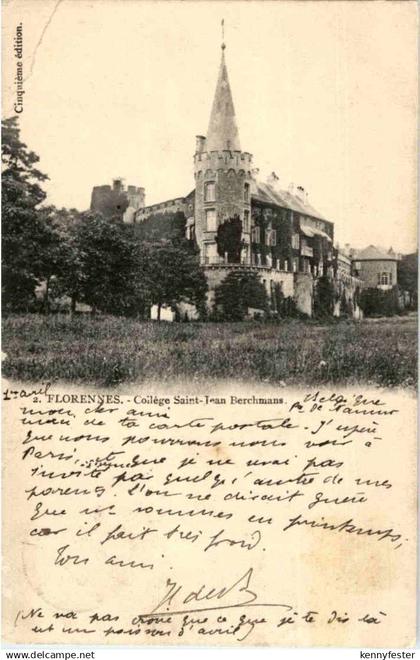 Cinquième édition.
2. FLORENNES. - Collège Saint-Jean Berchmans.
1er avril
Belgique
Pce de Namur
mon cher ami
de ta carte postale. J'espère
que nous pourrons nous voir à
Paris, que je ne vai pas
invité par quelqu'autre de mes
parents. L'on ne dirait guère
que nous sommes en printemps,
car il fait très froid.
Ton ami
H de B
(Ne va pas croire que ce que je te dis là
est un poisson d'avril)
www.delcampe.net
kennyfester